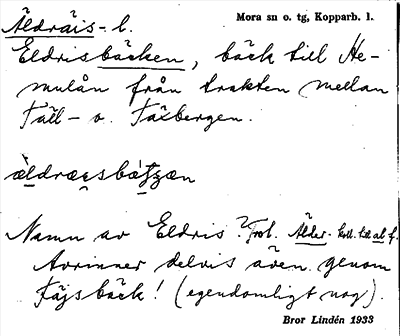 Äldräis- l. Mora sn o. tg, Kopparb. l.
Eldrisbäcken, bäck till He-
mulån från trakten mellan
Fäll- o. Fäxbergen.
Namn av Eldris? Trol. Älder- koll. till al f.
Avrinner delvis även genom
Fäjsbäck! (egendomligt nog).
Bror Lindén 1933